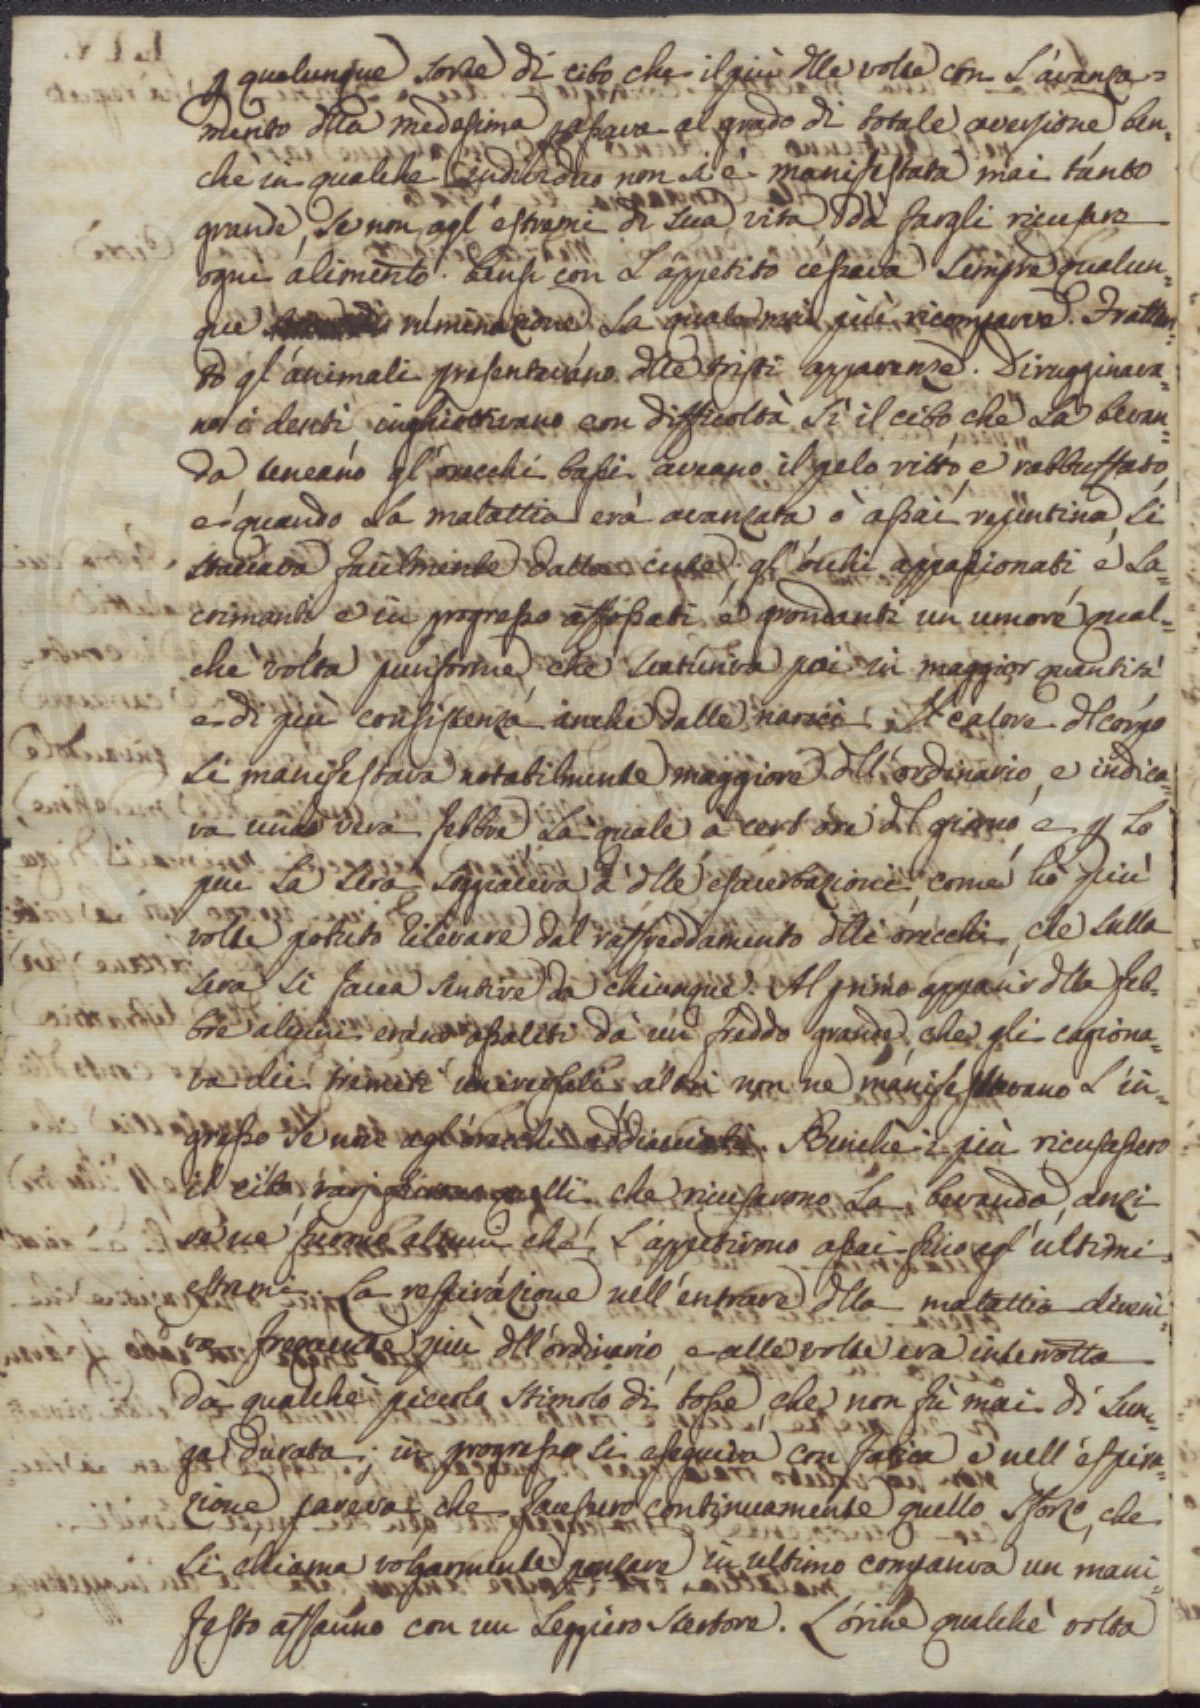 p qualunque sorte di cibo che il più dlle volte con l'avanza=
mento dlla medesima passava al grado di totale aversione ben=
che in qualche individuo non si è manifestata mai tanto
grande, se non agl'estremi di sua vita dà fargli ricusare
ogni alimento. Bensi con l'appetito cessava sempre qualun=
que ruminazione, la quale mai più ricomparve. Frattan=
to gl'animali presentavano dlle tristi apparenze. Dirugginava=
no i denti, inghiottivano con difficoltà sì il cibo che la bevan=
da teneano gl'orecchi bassi aveano il pelo ritto, e rabbuffato,
e quando la malattia erà avanzata ò assai repentina, si
staccava facilmente dalla cute; gl'occhi appassionati è la=
crimanti e in progresso affossati è grondanti un umore qual=
che volta puriforme, che scaturiva poi in maggior quantità
e di più consistenza anche dalle narici. Il calore dl corpo
si manifestava notabilmente maggiore dll'ordinario, e indica=
va una vera febbre la quale à cert'ore dl giorno, e p lo
più la sera soggiaceva à dlle esacerbazioni, come hò più
volte potuto rilevare dal raffreddamento dlli orecchi, che sulla
sera si facea sentire da chiunque. Al primo apparir dlla feb=
bre alcuni erano assaliti dà un freddo grande, che gli cagiona=
va dei tremiti universali, altri non ne manifestavano l'in=
gresso se non agl'orecchi addiacciati. Benchè i più ricusassero
il cibo, rari furono quelli che ricusarono la bevanda, anzi
se ne furono alcuni che l'appetirono assai fino agl'ultimi
estremi. La respirazione nell'entrare dlla malattia diveni=
va frequente più dll'ordinario, e alle volte era interrotta
dà qualchè piccolo stimolo di tosse, che non fù mai di lun=
ga durata; in progresso si eseguiva con fatica e nell'espira=
zione pareva che facessero continuamente quello sforzo, che
si chiama volgarmente ponzare in ultimo compariva un mani=
festo affanno con un leggiero stertore. L'orine qualchè volta